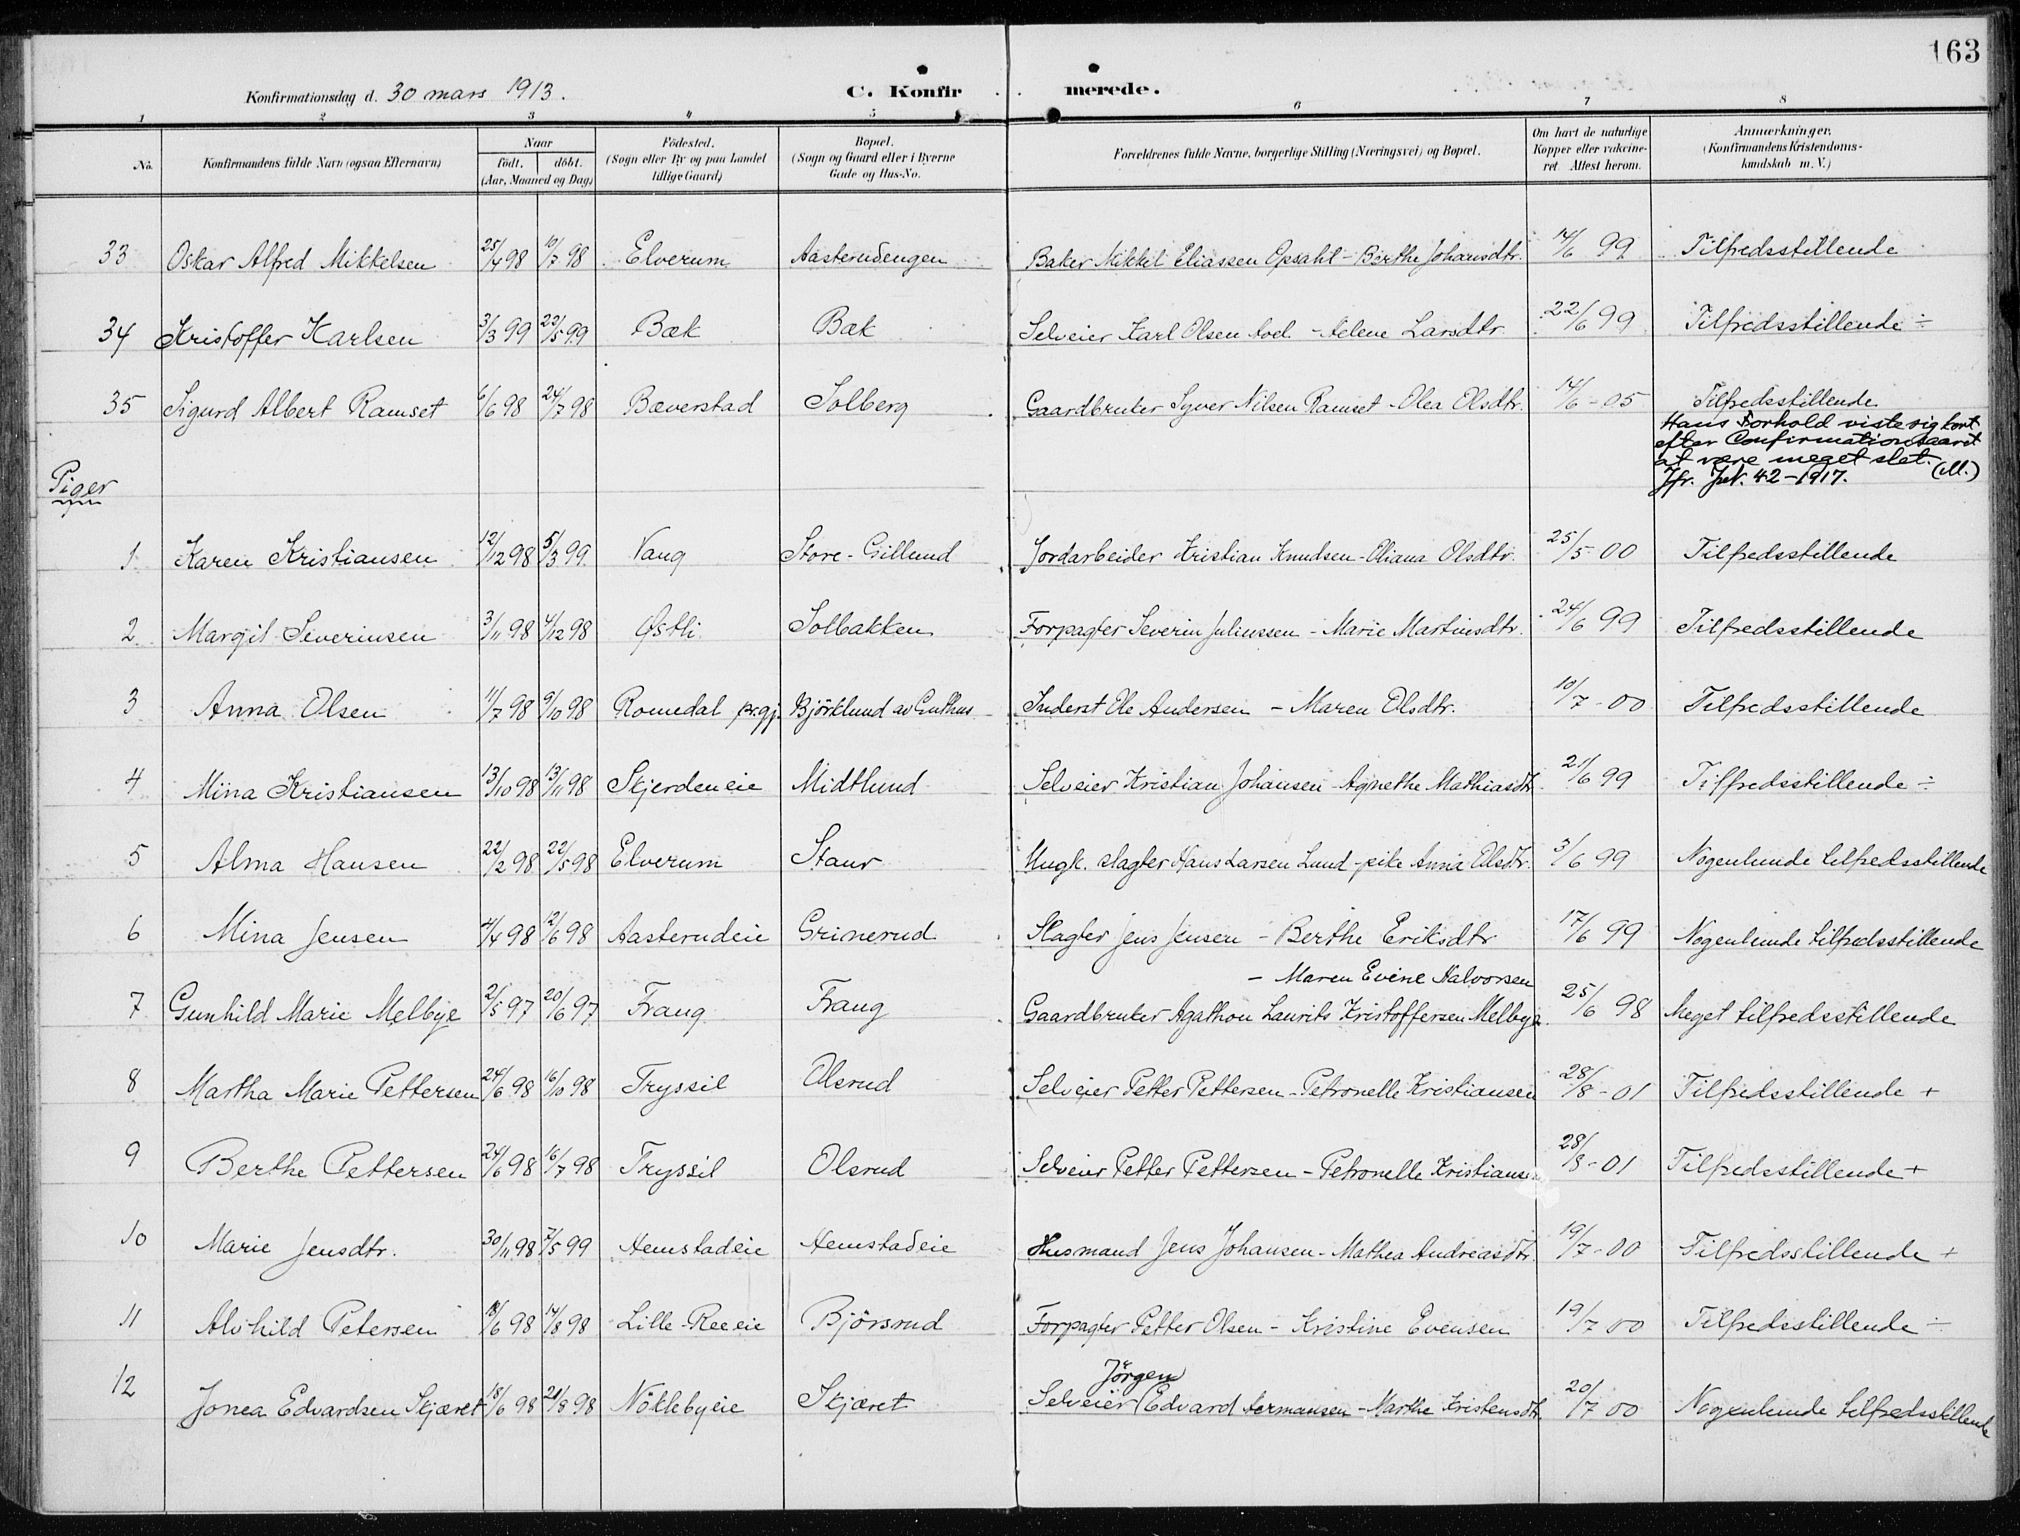 163
Konfirmationsdag d. 30 mars 1913.
C. Konfirmerede.
1 2 3 4 5 6 7 8
No.
Konfirmandens fulde Navn (ogsaa Efternavn)
Naar
født. døbt.
(Aar, Maaned og Dag)
Fødested.
(Sogn eller By og paa Landet
tillige Gaard)
Bopæl.
(Sogn og Gaard eller i Byerne
Gade og Hus-No.
Forældrenes fulde Navne, borgerlige Stilling (Næringsvei) og Bopæl.
Om havt de naturlige
Kopper eller vakcine-
ret Attest herom.
Anmærkninger.
(Konfirmandens Kristendoms-
kundskab m. V.)
33 Oskar Alfred Mikkelsen 25/4 98 10/7 98 Elverum Aasterudengen Baker Mikkel Eliassen Opsahl - Berthe Johansdtr. 14/6 99 Tilfredsstillende
34 Kristoffer Karlsen 3/3 99 22/5 99 Bæk Bæk Selveier Karl Olsen - Helene Larsdtr. 22/6 99 Tilfredsstillende ÷
35 Sigurd Albert Ramset 6/6 98 24/7 98 Bæverstad Solberg Gaardbruker Syver Nilsen Ramset - Olea Olsdtr. 14/6 - 05 Tilfredsstillende
Hans Forhold viste sig kort
efter Confirmationsaaret
at være meget slet.
Jfr. Jr. 42-1917. (M.)
Piger
1 Karen Kristiansen 12/12 98 5/3 99. Vang Store-Gillund Jordarbeider Kristian Knudsen - Oliana Olsdtr. 25/5 - 00 Tilfredsstillende
2 Margit Severinsen 3/11 98 4/12 98 Østli Solbakken Forpagter Severin Juliussen - Marie Martinsdtr. 24/6 99 Tilfredsstillende
3 Anna Olsen 11/7 98 9/10 98 Romedal prgj. Björklund av Guthus Inderst Ole Andersen - Maren Olsdtr. 10/7 - 00 Tilfredsstillende
4 Mina Kristiansen 13/10 98 13/11 98 Skjerden eie Midtlund Selveier Kristian Johansen - Agnethe Mathiasdtr. 21/6 99 Tilfredsstillende ÷
5 Alma Hansen 22/2 98 22/5 98 Elverum Staur Ungk. slagter Hans Larsen Lund - pike Anna Olsdtr. 3/6 99 Nogenlunde tilfredsstillende
6 Mina Jensen 4/4 98 12/6 98 Aasterudeie Grinerud Slagter Jens Jensen - Berthe Eriksdtr. 17/6 99 Nogenlunde tilfredsstillende
- Maren Evine Halvorsen
7 Gunhild Marie Melbye 2/5 97 20/6 97 Frang Frang Gaardbruker Agathon Laurits Kristoffersen Melbye. 25/6 98 Meget tilfredsstillende
8 Martha Marie Pettersen 24/6 98 16/10 98 Tryssil Olsrud Selveier Petter Pettersen - Petronelle Kristiansen 28/8 - 01 Tilfredsstillende +
9 Berthe Pettersen 24/6 98 16/7 98 Tryssil Olsrud Selveier Petter Pettersen - Petronelle Kristianse 28/8 - 01 Tilfredsstillende +
10 Marie Jensdtr. 30/11 98 7/5 99 Hemstadeie Hemstadeie Husmand Jens Johansen - Mathea Andreasdtr. 19/7 - 00 Tilfredsstillende +
11 Alvhild Petersen 18/6 98 14/8 98 Lille-Ree eie Björsrud Forpagter Petter Olsen - Kristine Evensen 19/7 00 Tilfredsstillende ÷
Jörgen
12 Jonea Edvardsen Skjæret 18/6 98 21/8 98 Nöklebyeie Skjæret Selveier Edvard Hermansen - Marthe Kristensdtr. 20/7 00 Nogenlunde tilfredsstillende